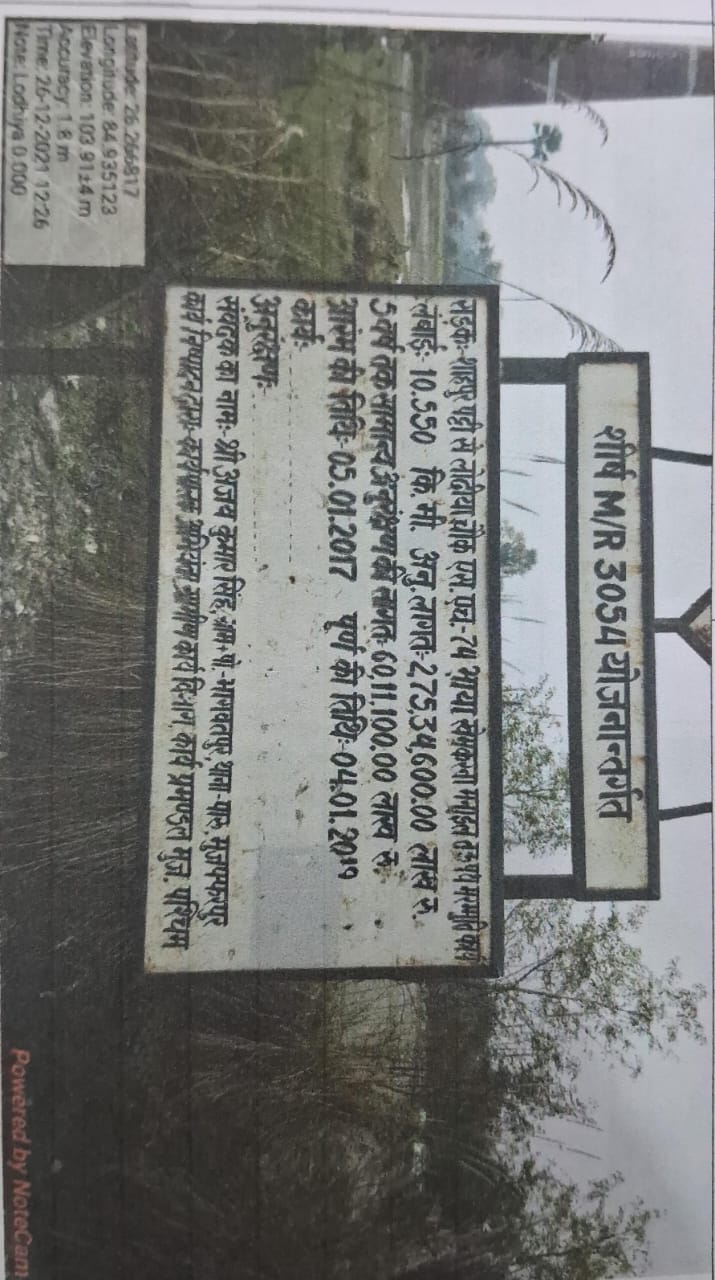 शीर्ष M/R 3054 योजनान्तर्गत
सड़क:-शाहपुर पट्टी से लोढ़िया चौक एस.एच.-74 भाया
लंबाई:- 10.550 कि.मी. अनु.लागत:-2,75,34,600.00 लाख रु.
5 वर्ष तक सामान्य अनुरक्षण की लागत:-60,11,100.00 लाख रु.
आरंभ की तिथि:-05.01.2017 पूर्ण की तिथि:-04.01.2019
कार्य:-
अनुरक्षण:-
संवेदक का नाम:-श्री अजय कुमार सिंह, ग्राम+पो.-भगवतपुर, थाना-पारू, मुजफ्फरपुर
कार्य निष्पादन द्वारा:-कार्यपालक अभियंता, ग्रामीण कार्य विभाग, कार्य प्रमण्डल मुज. पश्चिम
Latitude: 26.266817
Longitude: 84.935123
Elevation: 103.91±4 m
Accuracy: 1.8 m
Time: 26-12-2021 12:26
Note: Lodhiya 0.000
Powered by NoteCam